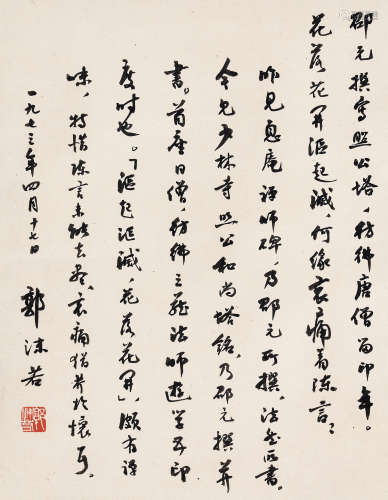 邵元撰寫照公塔，彷彿唐僧留印年。
花落花開漚起滅，何緣哀痛着陳言？
昨見息庵禅師碑，乃邵元所撰，法然所書。
今見少林寺照公和尚塔銘，乃邵元撰并
書。首座日僧，彷彿三藏法師遊學五印
度時也。「漚起漚滅，花落花開」頗有禅
味，特惜陳言未能去盡，哀痛猶於懷耳。
一九七三年四月十七日
郭沫若